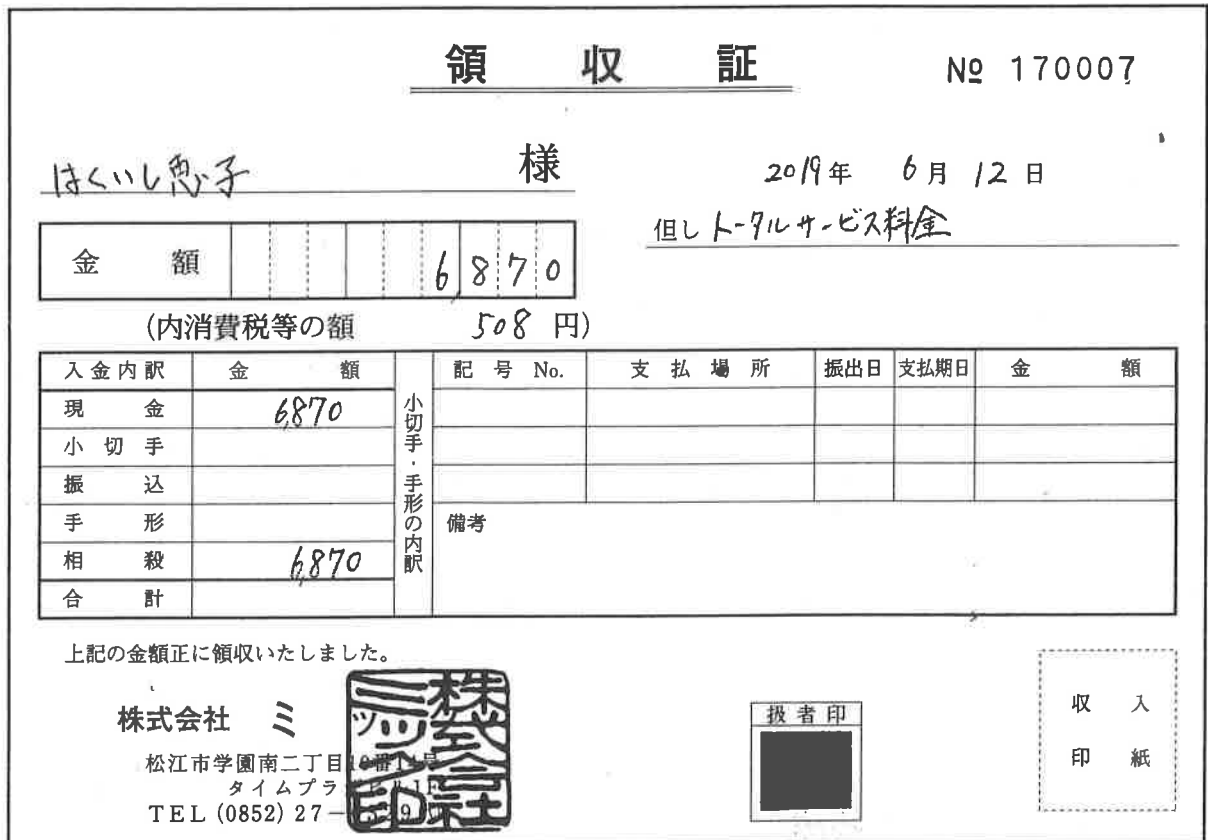 領収証
№ 170007
はくいし恵子 様
2019年 6月 12日
但し トータルサービス料金
金額 6,870
(内消費税等の額 508 円)
入金内訳 金額
現金 6,870
小切手
振込
手形
相殺 6,870
合計
小切手・手形の内訳
記号 No. 支払場所 振出日 支払期日 金額
備考
上記の金額正に領収いたしました。
株式会社 ミ
松江市学園南二丁目
タイムプラ
TEL (0852) 27-
扱者印
収入
印紙